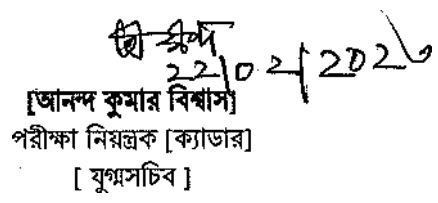 22/02/202
[আনন্দ কুমার বিশ্বাস]
পরীক্ষা নিয়ন্ত্রক [ক্যাডার]
[ যুগ্মসচিব ]